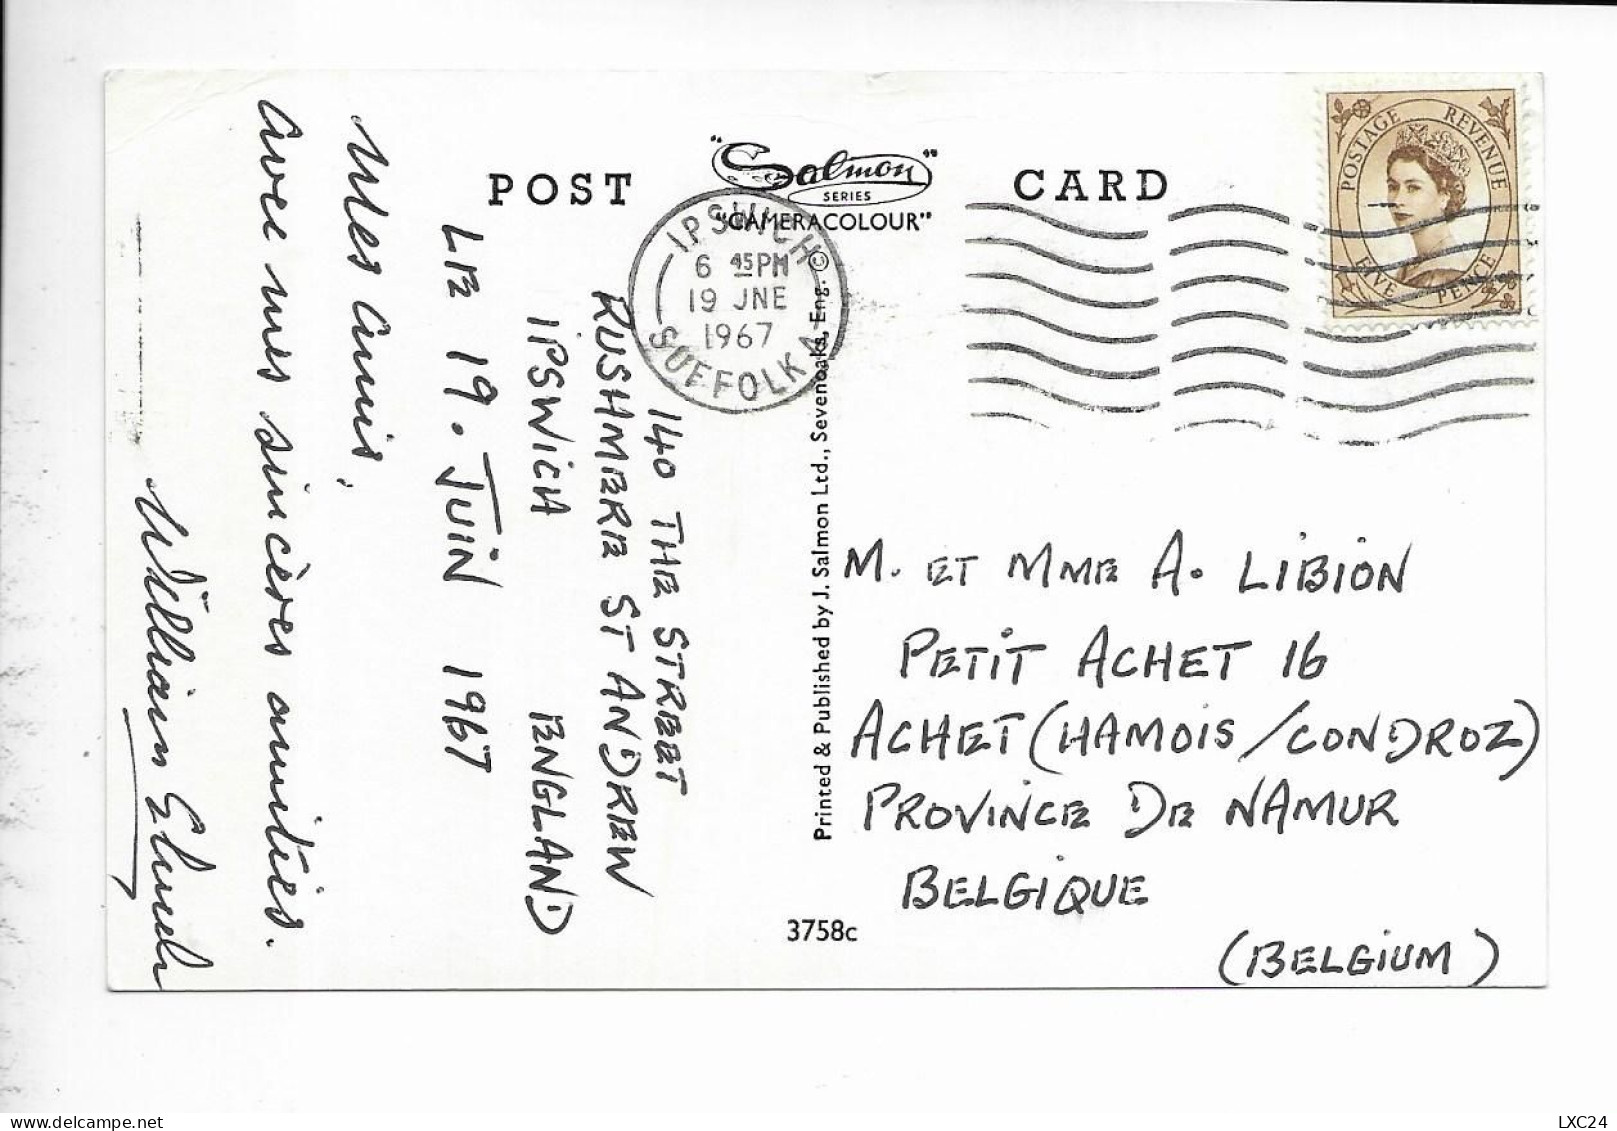 POST CARD
"Salmon"
SERIES
"CAMERACOLOUR"
POSTAGE REVENUE
FIVE PENCE
IPSWICH
6 45PM
19 JNE
1967
SUFFOLK A
140 THE STREET
RUSHMERE ST ANDREW
IPSWICH ENGLAND
LE 19. JUIN 1967
Mes amis,
Avec mes sincères amitiés.
William
Printed & Published by J. Salmon Ltd., Sevenoaks, Eng. ©
M. ET MME A. LIBION
PETIT ACHET 16
ACHET (HAMOIS/CONDROZ)
PROVINCE DE NAMUR
BELGIQUE
(BELGIUM)
3758c
LXC24